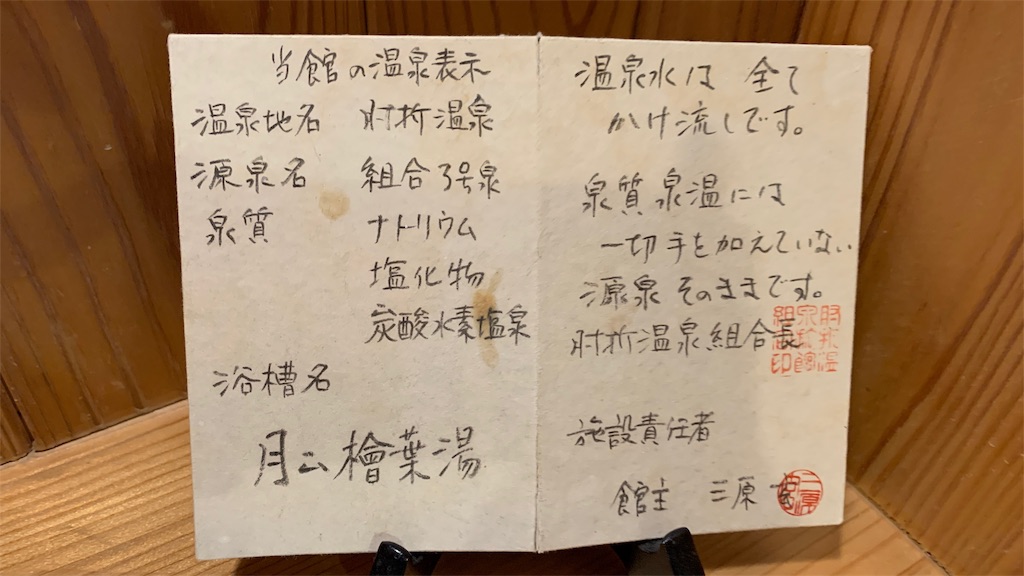 当館の温泉表示
温泉地名 肘折温泉
源泉名 組合3号泉
泉質 ナトリウム
塩化物
炭酸水素塩泉
浴槽名
檜葉湯
温泉水は 全て
かけ流しです。
泉質泉温には
一切手を加えていない
源泉そのままです。
肘折温泉組合長
施設責任者
館主 三原